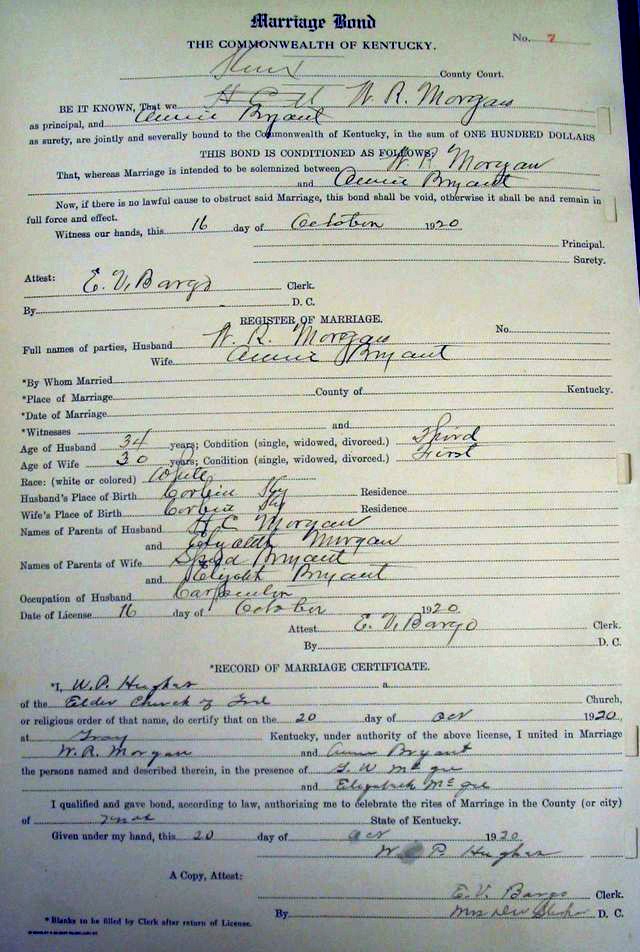 Marriage Bond
No. 7
THE COMMONWEALTH OF KENTUCKY.
County Court.
BE IT KNOWN, That we W. R. Morgan
as principal, and Annie Bryant
as surety, are jointly and severally bound to the Commonwealth of Kentucky, in the sum of ONE HUNDRED DOLLARS
THIS BOND IS CONDITIONED AS FOLLOWS:
That, whereas Marriage is intended to be solemnized between W. R. Morgan
and Annie Bryant
Now, if there is no lawful cause to obstruct said Marriage, this bond shall be void, otherwise it shall be and remain in
full force and effect.
Witness our hands, this 16 day of October 1920
Principal.
Surety.
Attest: E. V. Bargo Clerk.
By D. C.
REGISTER OF MARRIAGE.
No.
Full names of parties, Husband W. R. Morgan
Wife Annie Bryant
*By Whom Married
*Place of Marriage County of Kentucky.
*Date of Marriage
*Witnesses and
Age of Husband 34 years; Condition (single, widowed, divorced.) Third
Age of Wife 30 years; Condition (single, widowed, divorced.) First
Race: (white or colored) White
Husband's Place of Birth Corbin Ky Residence
Wife's Place of Birth Corbin Ky Residence
Names of Parents of Husband H C Morgan
and Morgan
Names of Parents of Wife Bryant
and Bryant
Occupation of Husband Carpenter
Date of License 16 day of October 1920
Attest E. V. Bargo Clerk.
By D. C.
*RECORD OF MARRIAGE CERTIFICATE.
*I, W. P. Hughes a
of the Elder Church of God Church,
or religious order of that name, do certify that on the 20 day of Oct 1920,
at Gray Kentucky, under authority of the above license, I united in Marriage
W. R. Morgan and Annie Bryant
the persons named and described therein, in the presence of McGee
and Elizabeth McGee
I qualified and gave bond, according to law, authorizing me to celebrate the rites of Marriage in the County (or city)
of Knox State of Kentucky.
Given under my hand, this 20 day of Oct 1920
W P. Hughes
A Copy, Attest:
E. V. Bargo Clerk.
By Mrs D. C.
*Blanks to be filled by Clerk after return of License.